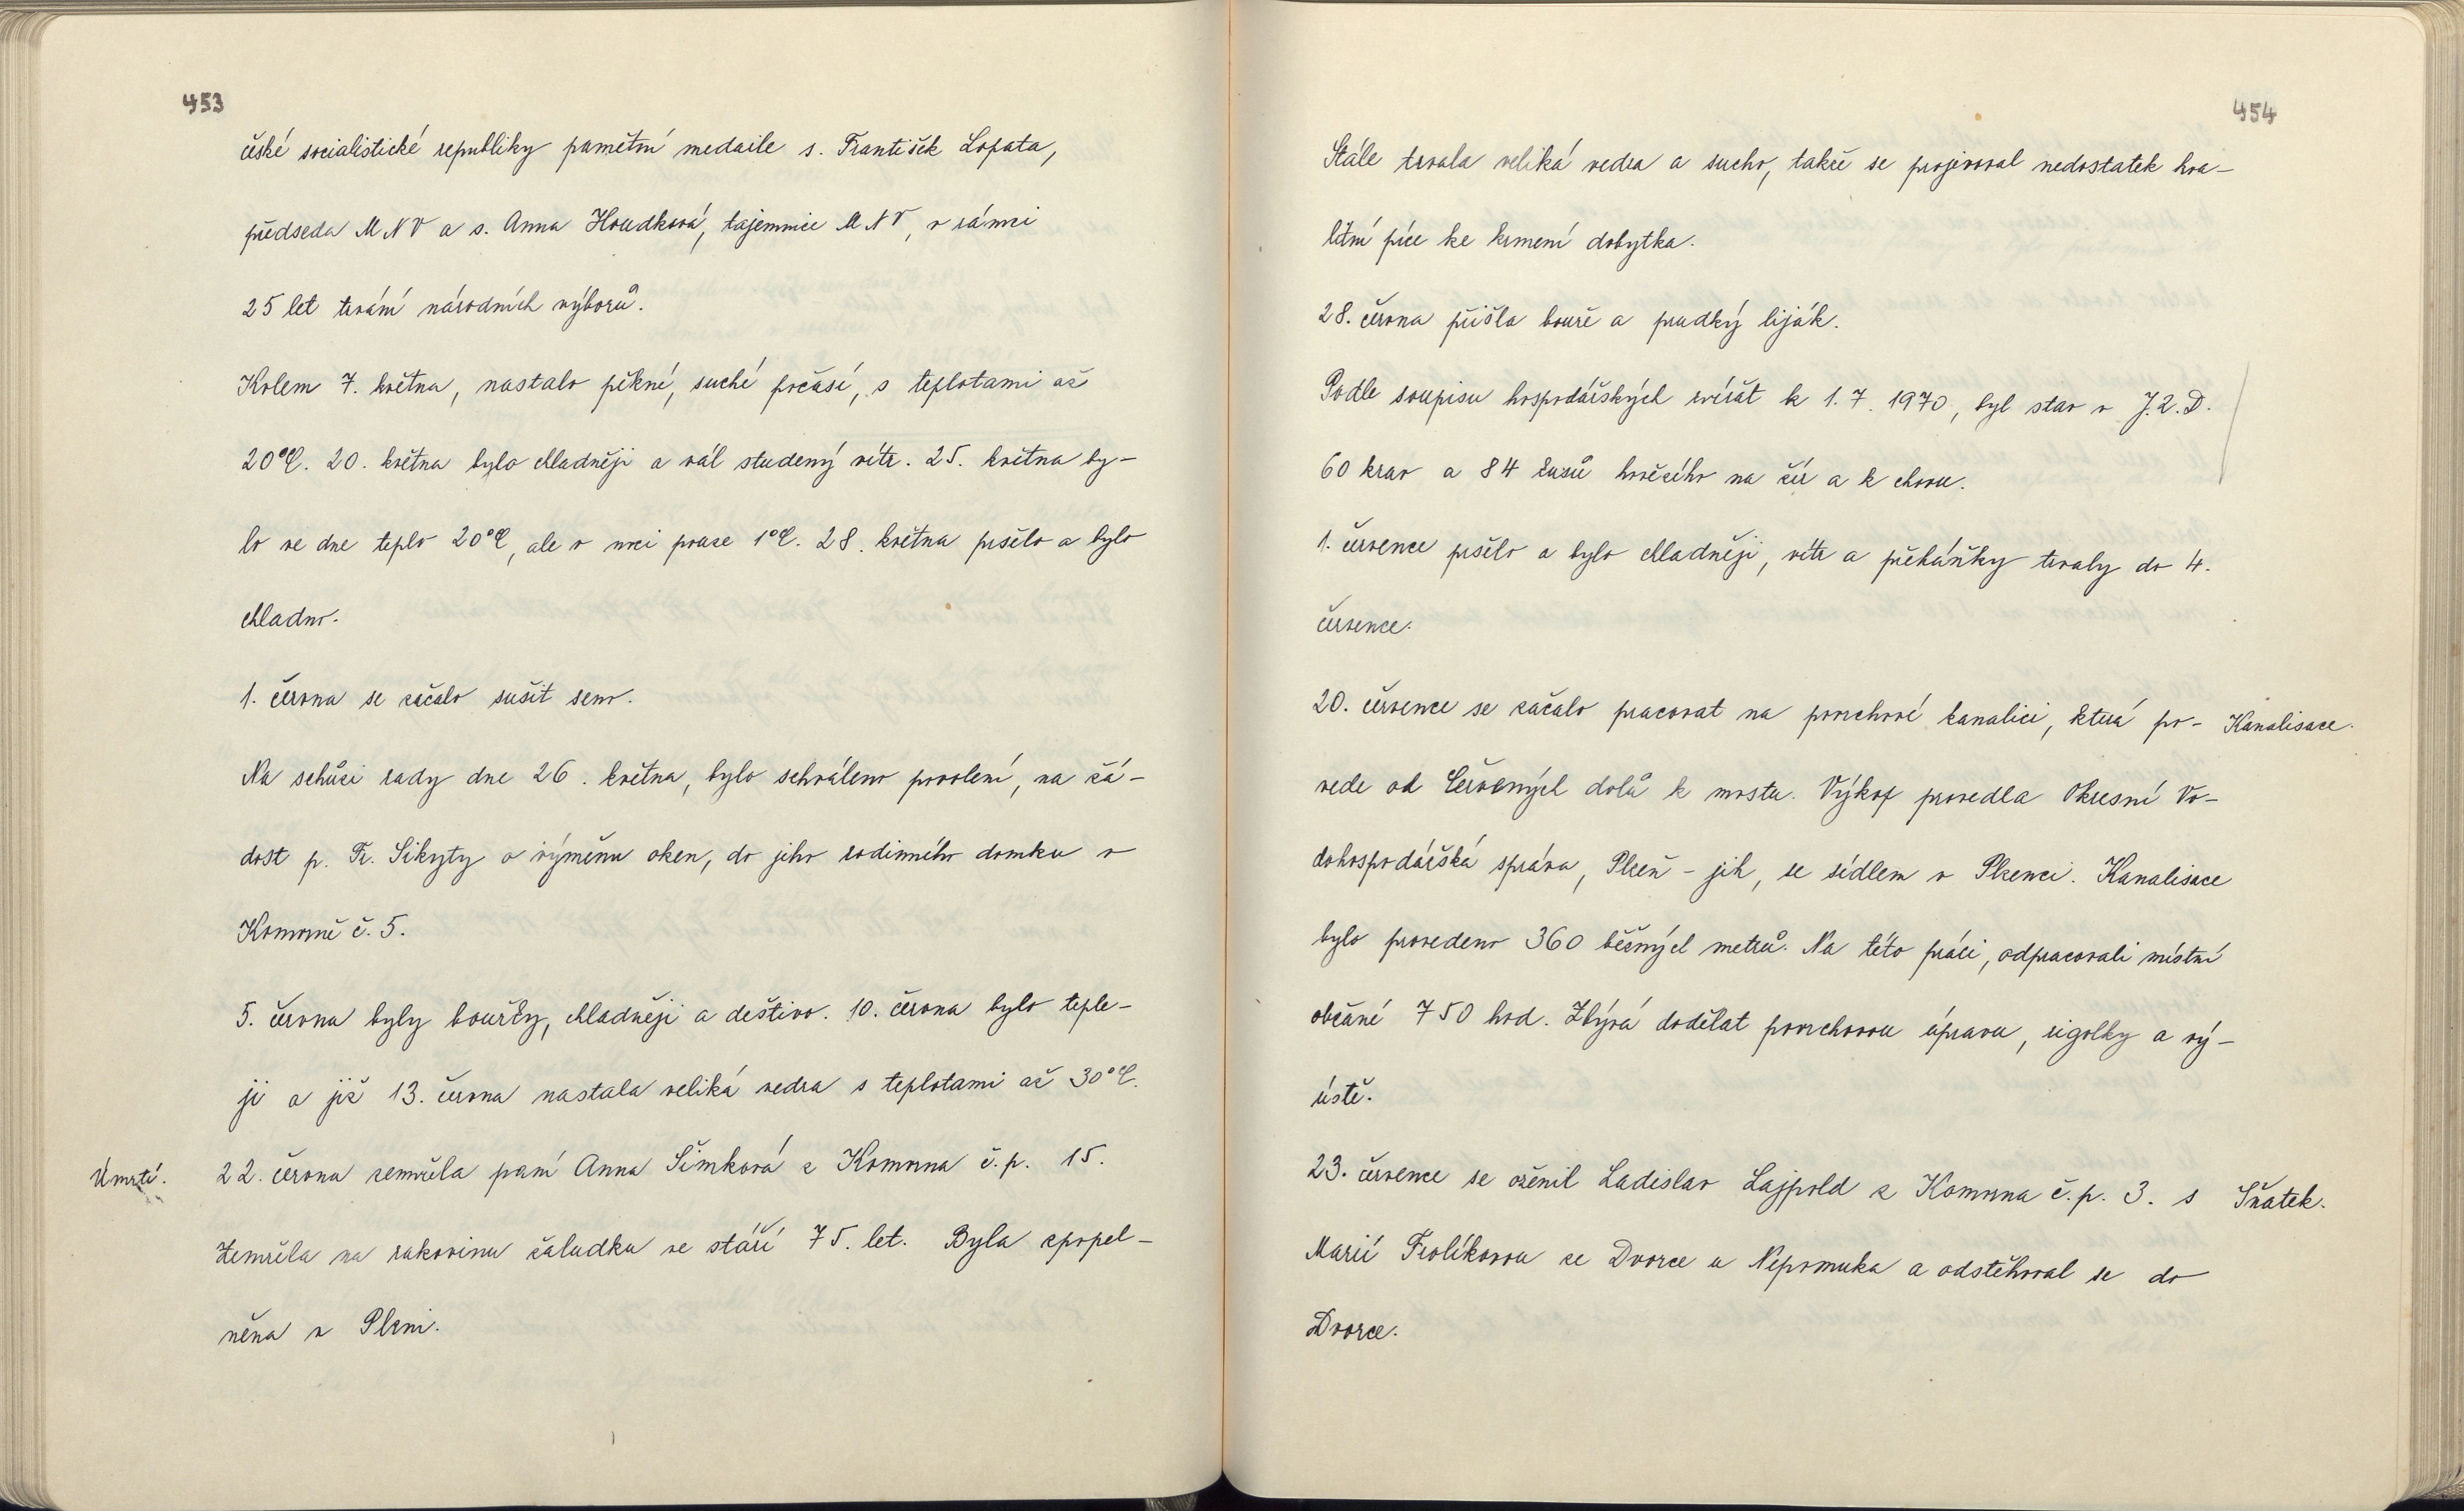 453
české socialistické republiky pamětní medaile s. František Lopata,
předseda MNV a s. Anna Houdková, tajemnice MNV, v rámci
25 let trvání národních výborů.
Kolem 7. května, nastalo pěkné, suché počasí, s teplotami až
20°C. 20. května bylo chladněji a vál studený vítr. 25. května by-
lo ve dne teplo 20°C, ale v noci pouze 1°C. 28. května pršelo a bylo
chladno.
1. června se začalo sušit seno.
Na schůzi rady dne 26. května, bylo schváleno povolení, na žá-
dost p. Fr. Sikyty o výměnu oken, do jeho rodinného domku v
Komorně č. 5.
5. června byly bouřky, chladněji a deštivo. 10. června bylo teple-
ji a již 13. června nastala veliká vedra s teplotami až 30°C.
Úmrtí. 22. června zemřela paní Anna Šimková z Komorna č.p. 15.
Zemřela na rakovinu žaludku ve stáří 75. let. Byla zpopel-
něna v Plzni.
454
Stále trvala veliká vedra a sucho, takže se projevoval nedostatek kva-
litní píce ke krmení dobytka.
28. června přišla bouře a prudký liják.
Podle soupisu hospodářských zvířat k 1.7.1970, byl stav v J.Z.D.
60 krav a 84 kusů hovězího na žír a k chovu.
1. července pršelo a bylo chladněji, vítr a přeháňky trvaly do 4.
července.
20. července se začalo pracovat na povrchové kanalici, která po- Kanalisace.
vede od Červených dolů k mostu. Výkop provedla Okresní Vo-
dohospodářská správa, Plzeň - jih, se sídlem v Plzenci. Kanalisace
bylo provedeno 360 běžných metrů. Na této práci, odpracovali místní
občané 750 hod. Zbývá dodělat povrchovou úpravu, rigolky a vý-
ústě.
23. července se oženil Ladislav Lajpold z Komorna č.p. 3. s Sňatek.
Marií Frolíkovou ze Dvorce u Nepomuka a odstěhoval se do
Dvorce.